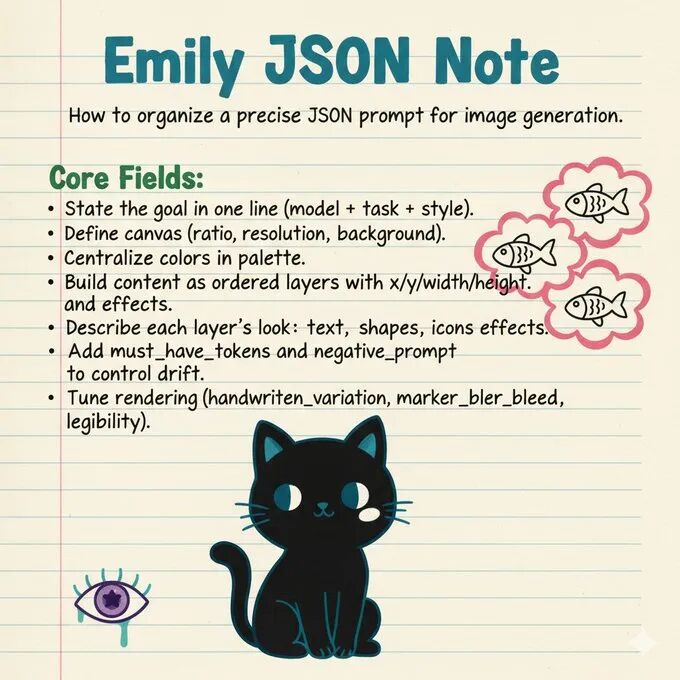 Emily JSON Note
How to organize a precise JSON prompt for image generation.
Core Fields:
• State the goal in one line (model + task + style).
• Define canvas (ratio, resolution, background).
• Centralize colors in palette.
• Build content as ordered layers with x/y/width/height.
and effects.
• Describe each layer's look: text, shapes, icons effects.
• Add must_have_tokens and negative_prompt
to control drift.
• Tune rendering (handwriten_variation, marker_bler_bleed,
legibility).